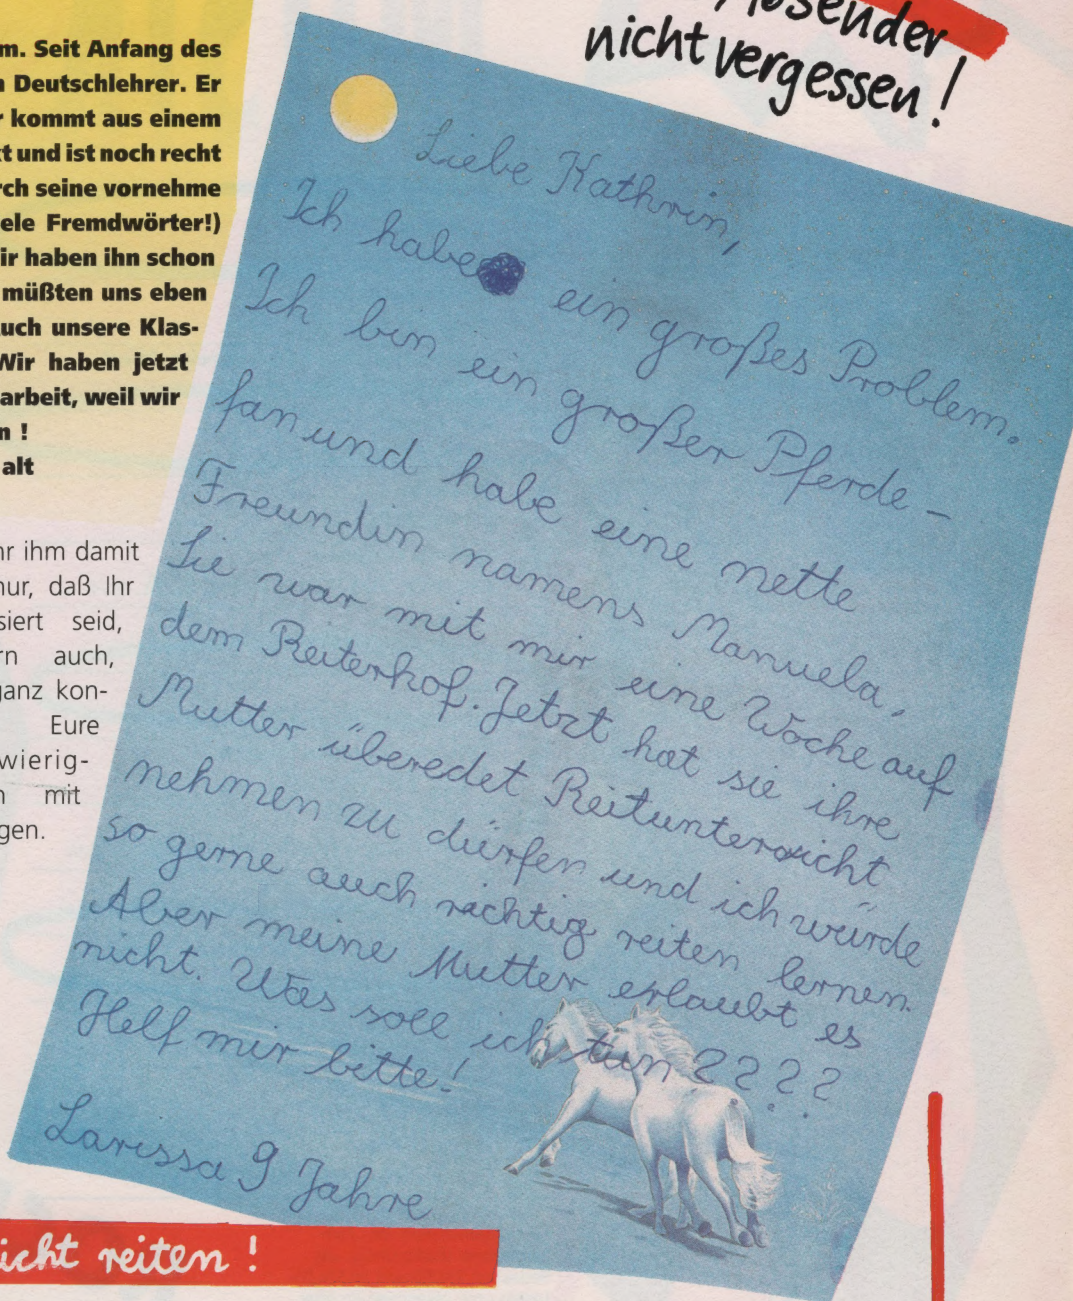 m. Seit Anfang des
Deutschlehrer. Er
kommt aus einem
t und ist noch recht
rch seine vornehme
ele Fremdwörter!)
ir haben ihn schon
müßten uns eben
uch unsere Klas-
Wir haben jetzt
arbeit, weil wir
n !
alt
hr ihm damit
nur, daß Ihr
siert seid,
rn auch,
ganz kon-
Eure
wierig-
n mit
gen.
Absender
nicht vergessen!
Liebe Kathrin,
Ich habe ein großes Problem.
Ich bin ein großer Pferde-
fan und habe eine nette
Freundin namens Manuela,
Sie war mit mir eine Woche auf
dem Reiterhof. Jetzt hat sie ihre
Mutter überedet Reitunterricht
nehmen zu dürfen und ich würde
so gerne auch richtig reiten lernen.
Aber meine Mutter erlaubt es
nicht. Was soll ich tun ????
Helf mir bitte!
Larissa 9 Jahre
icht reiten !